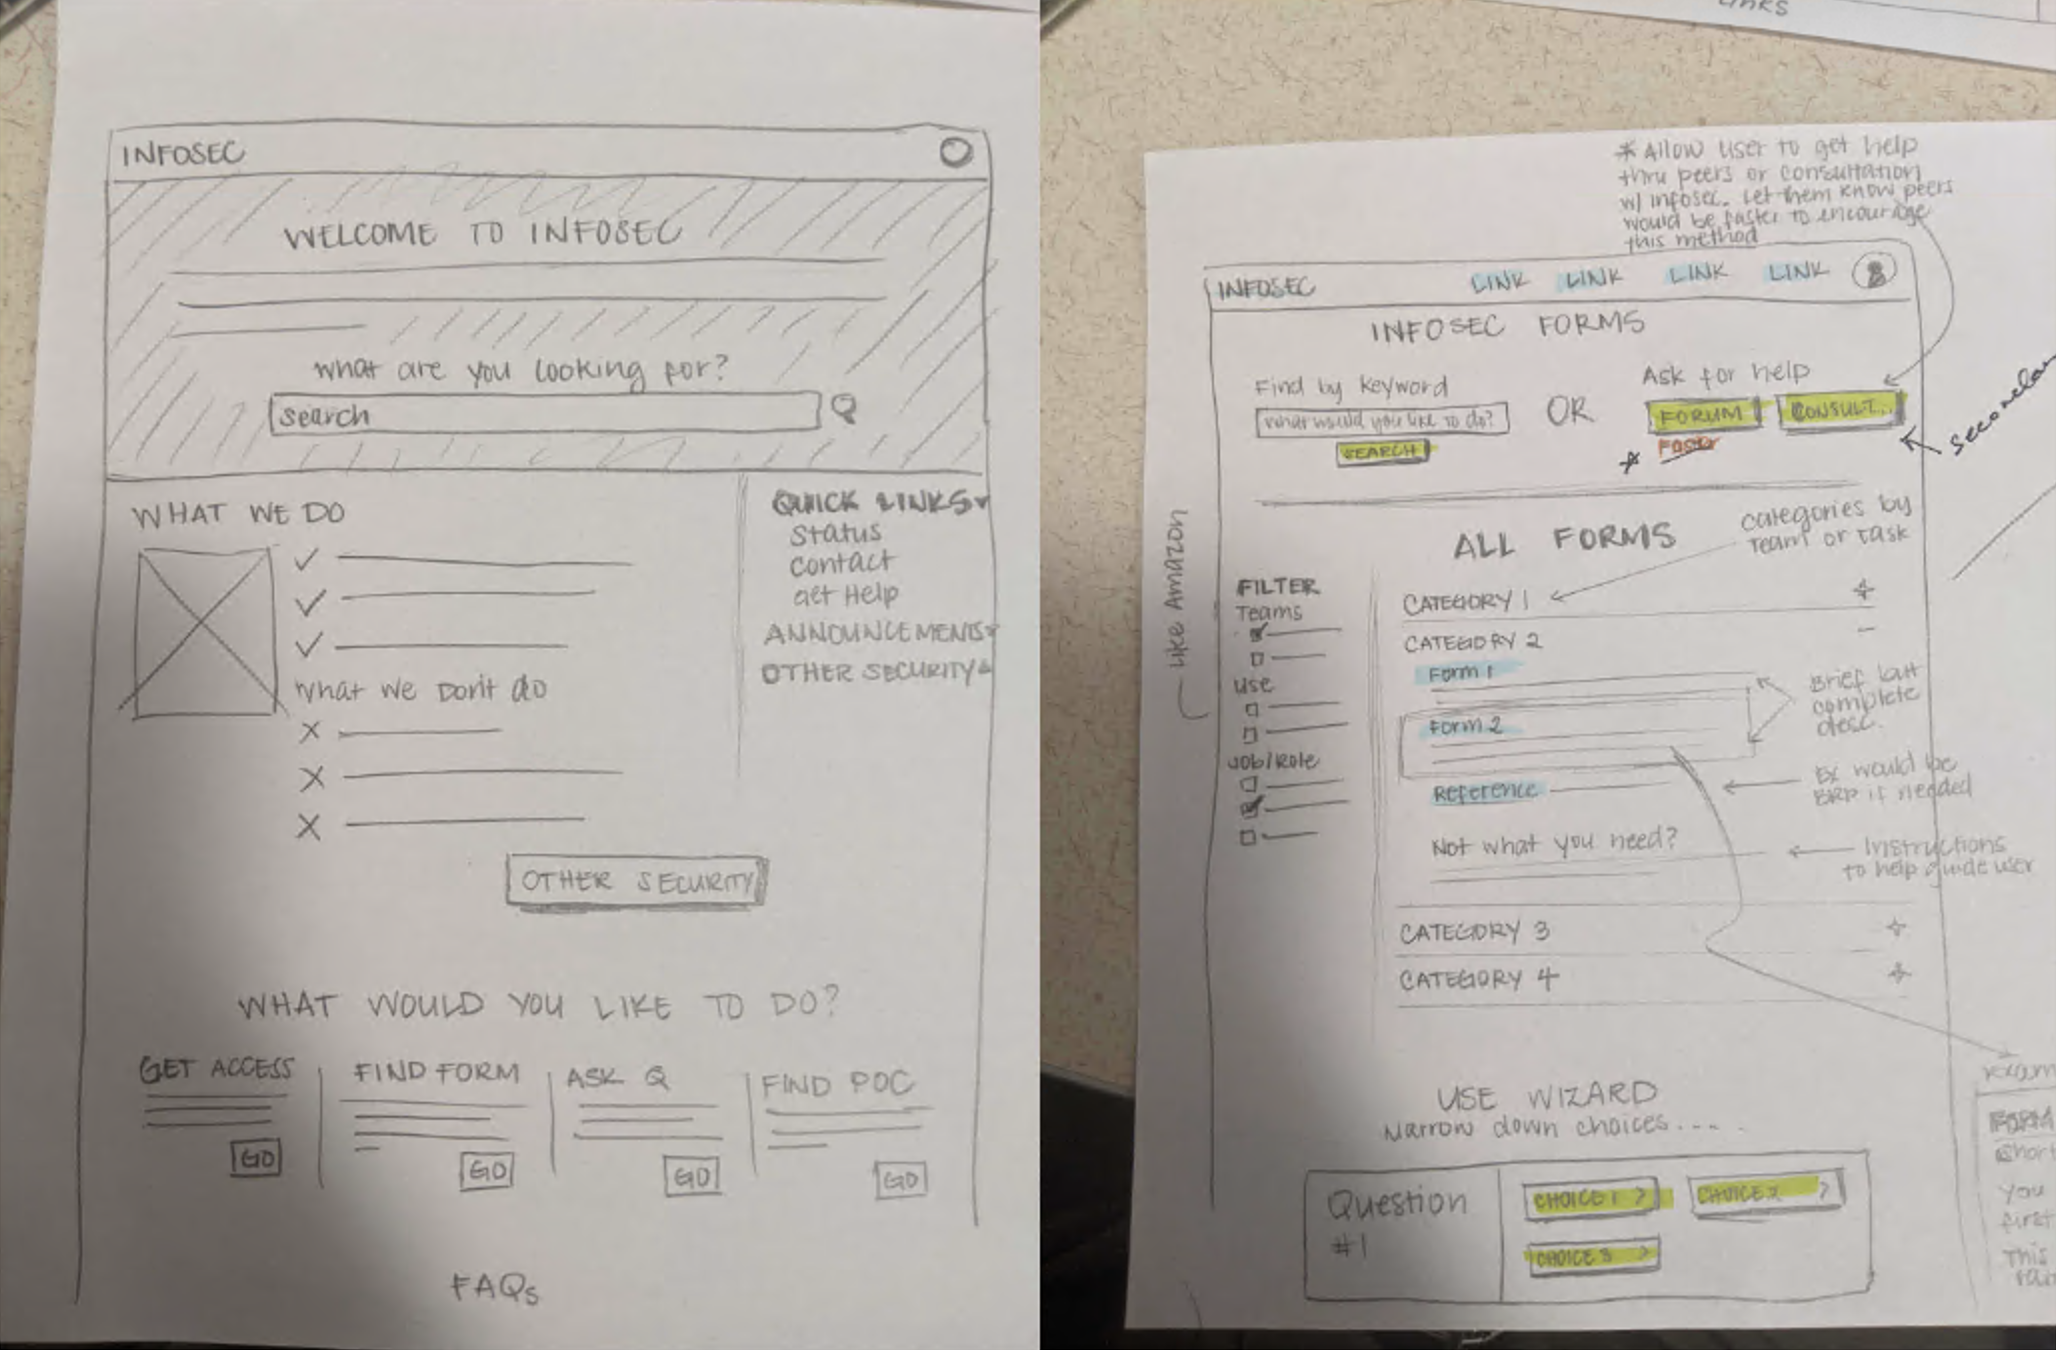 INFOSEC
WELCOME TO INFOSEC
What are you looking for?
Search
WHAT WE DO
What we Don't do
OTHER SECURITY
QUICK LINKS
Status
Contact
Get Help
ANNOUNCEMENTS
OTHER SECURITY
WHAT WOULD YOU LIKE TO DO?
GET ACCESS
GO
FIND FORM
GO
ASK Q
GO
FIND POC
GO
FAQs
* Allow user to get help
thru peers or consultation
w/ infosec. Let them know peers
would be faster to encourage
this method
INFOSEC
LINK LINK LINK LINK
INFOSEC FORMS
Find by Keyword
What would you like to do?
SEARCH
OR
Ask for help
FORUM
CONSULT...
*
ALL FORMS
Categories by
Team or task
Like Amazon
FILTER
Teams
Use
Job/Role
CATEGORY 1 +
CATEGORY 2 -
Form 1
Form 2
Brief but
complete
desc.
Reference
Ex would be
BRP if needed
Not what you need?
Instructions
to help guide user
CATEGORY 3 +
CATEGORY 4 +
USE WIZARD
Narrow down choices....
Question
#1
CHOICE 1 >
CHOICE 2 >
CHOICE 3 >
FORM
Short
You
first
This